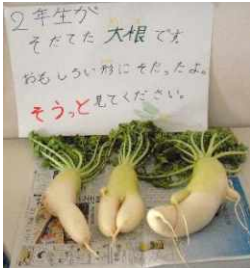 ２年生が
そだてた大根です。
おもしろい形にそだったよ。
そうっと見てください。